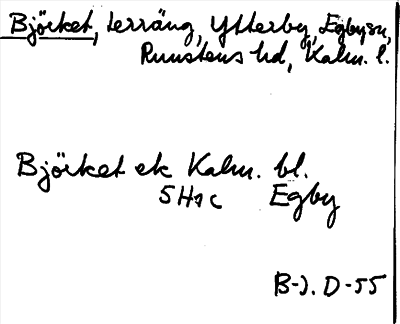 Björket, terräng, Ytterby, Egby sn,
Runstens hd, Kalm. l.
Björket ek Kalm. bl.
5H1c Egby
B-J. D-55